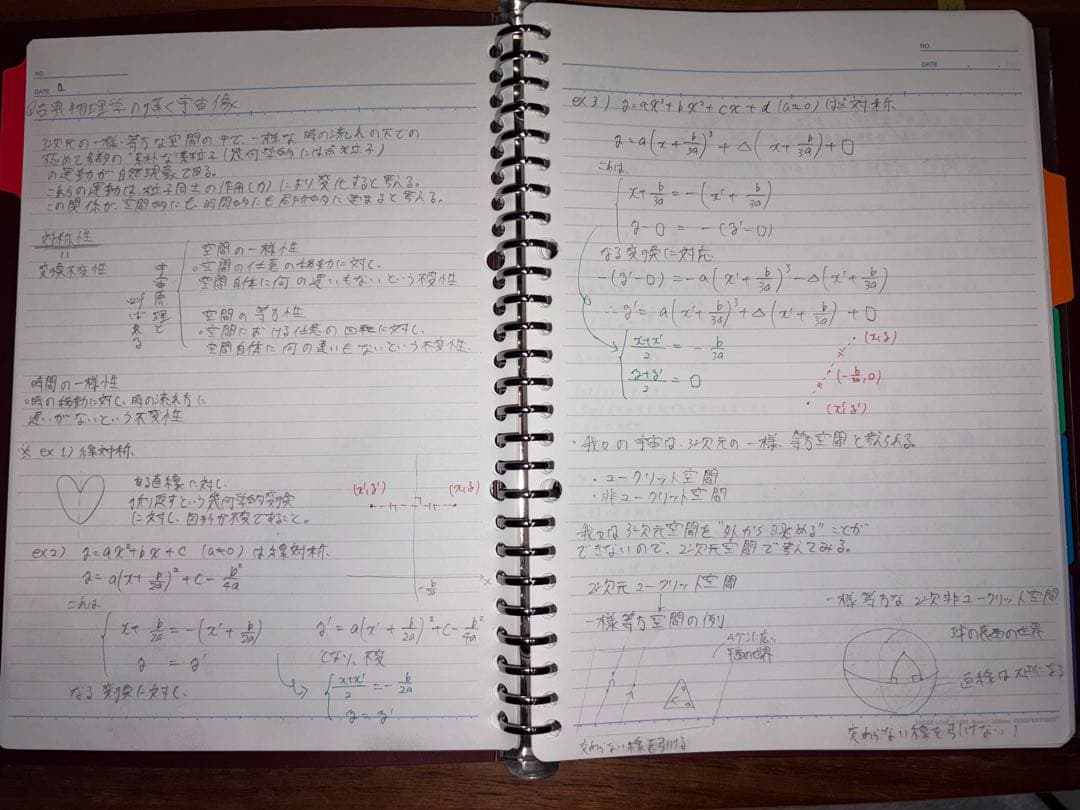 NO.
DATE
古典物理学の描く宇宙像
3次元の一様・等方な空間の中で、一様な時の流れの下での
極めて多数の"素朴な"素粒子(幾何学的には点粒子)
の運動が自然現象である。
これらの運動は、粒子同士の作用(力)により変化すると考える。
この関係が、空間的にも、時間的にも局所的に定まると考える。
対称性
=
変換不変性
宇宙原理と呼ばれる
空間の一様性
・空間の任意の移動に対し、
空間自体に何の違いもないという不変性
空間の等方性
・空間における任意の回転に対し、
空間自体に何の違いもないという不変性.
時間の一様性
・時の移動に対し、時の流れ方に
違いがないという不変性
※ ex 1) 線対称
ある直線に対し、
折り返すという幾何学的変換
に対し、図形が不変であること。
(x', y')
(x, y)
-b/2a
x
ex2) y=ax²+bx+c (a≠0) は線対称
y=a(x+b/2a)²+c-b²/4a
これは、
x+b/2a=-(x'+b/2a)
y = y'
なる変換に対し、
y'=a(x'+b/2a)²+c-b²/4a
となり、不変
(x+x')/2=-b/2a
y=y'
NO.
DATE
ex3) y=ax³+bx²+cx+d (a≠0) は点対称
y=a(x+b/3a)³+△(x+b/3a)+□
これは、
x+b/3a=-(x'+b/3a)
y-□=-(y'-□)
なる変換に対応
-(y'-□)=-a(x'+b/3a)³-△(x'+b/3a)
∴y'=a(x'+b/3a)³+△(x'+b/3a)+□
(x+x')/2=-b/3a
(y+y')/2=□
(x,y)
(-b/3a,□)
(x',y')
・我々の宇宙は、3次元の一様、等方空間と考えられる。
・ユークリット空間
・非ユークリット空間
我々は3次元空間を"外から眺める"ことが
できないので、2次元空間で考えてみる。
2次元ユークリット空間
↓
一様等方空間の例
平面の世界
交わらない線を引ける
一様等方な2次非ユークリット空間
球の表面の世界
直線は大円になる
交わらない線を引けない!